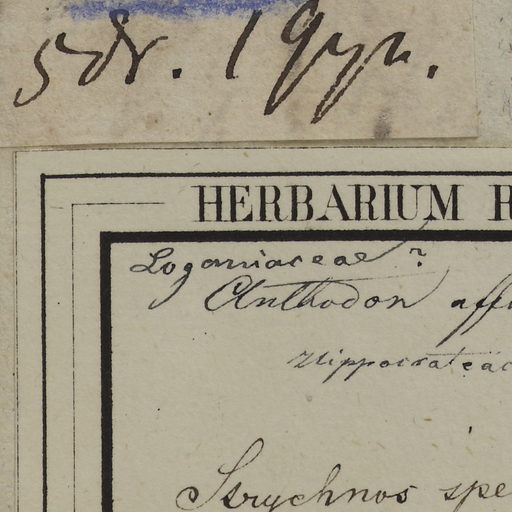 5dr. 1 Gyn.
HERBARIUM R
Loganiaceae ?
Anthodon affi
Hippocrateac
Strychnos spe